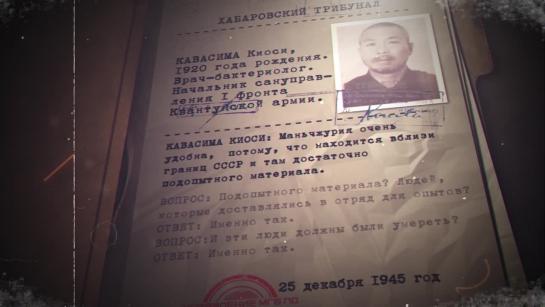 ХАБАРОВСКИЙ ТРИБУНАЛ
КАВАСИМА Киоси,
1920 года рождения.
Врач-бактериолог.
Начальник сануправ-
ления I фронта
Квантуйской армии.
КАВАСИМА КИОСИ: Маньчжурия очень
удобна, потому, что находится вблизи
границ СССР и там достаточно
подопытного материала.
ВОПРОС: Подопытного материала? Людей,
которые доставлялись в отряд для опытов?
ОТВЕТ: Именно так.
ВОПРОС:И эти люди должны были умереть?
ОТВЕТ: Именно так.
25 декабря 1945 год